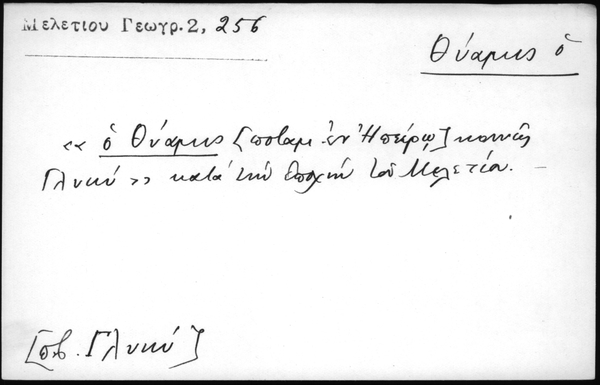 Μελετίου Γεωγρ. 2, 256
Θύαμις ὁ
«ὁ Θύαμις [ποταμ. ἐν Ἠπείρῳ] κοινῶς
Γλυκύ» κατὰ τὴν ἐποχὴν τοῦ Μελετίου.
[πβ. Γλυκύ]